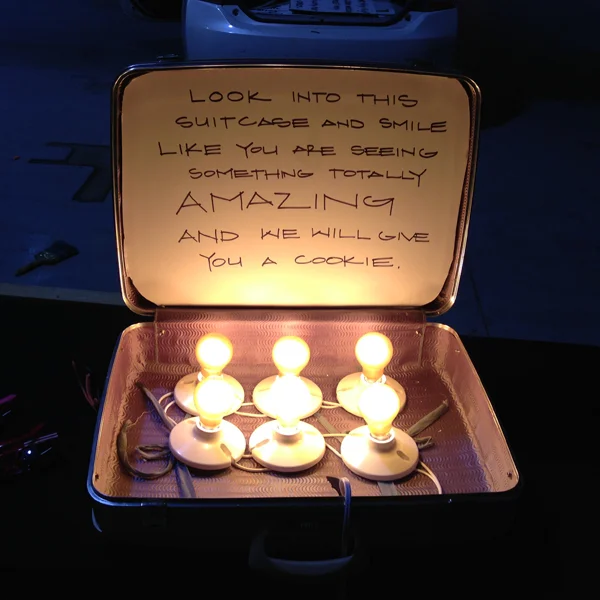 LOOK INTO THIS
SUITCASE AND SMILE
LIKE YOU ARE SEEING
SOMETHING TOTALLY
AMAZING
AND WE WILL GIVE
YOU A COOKIE.